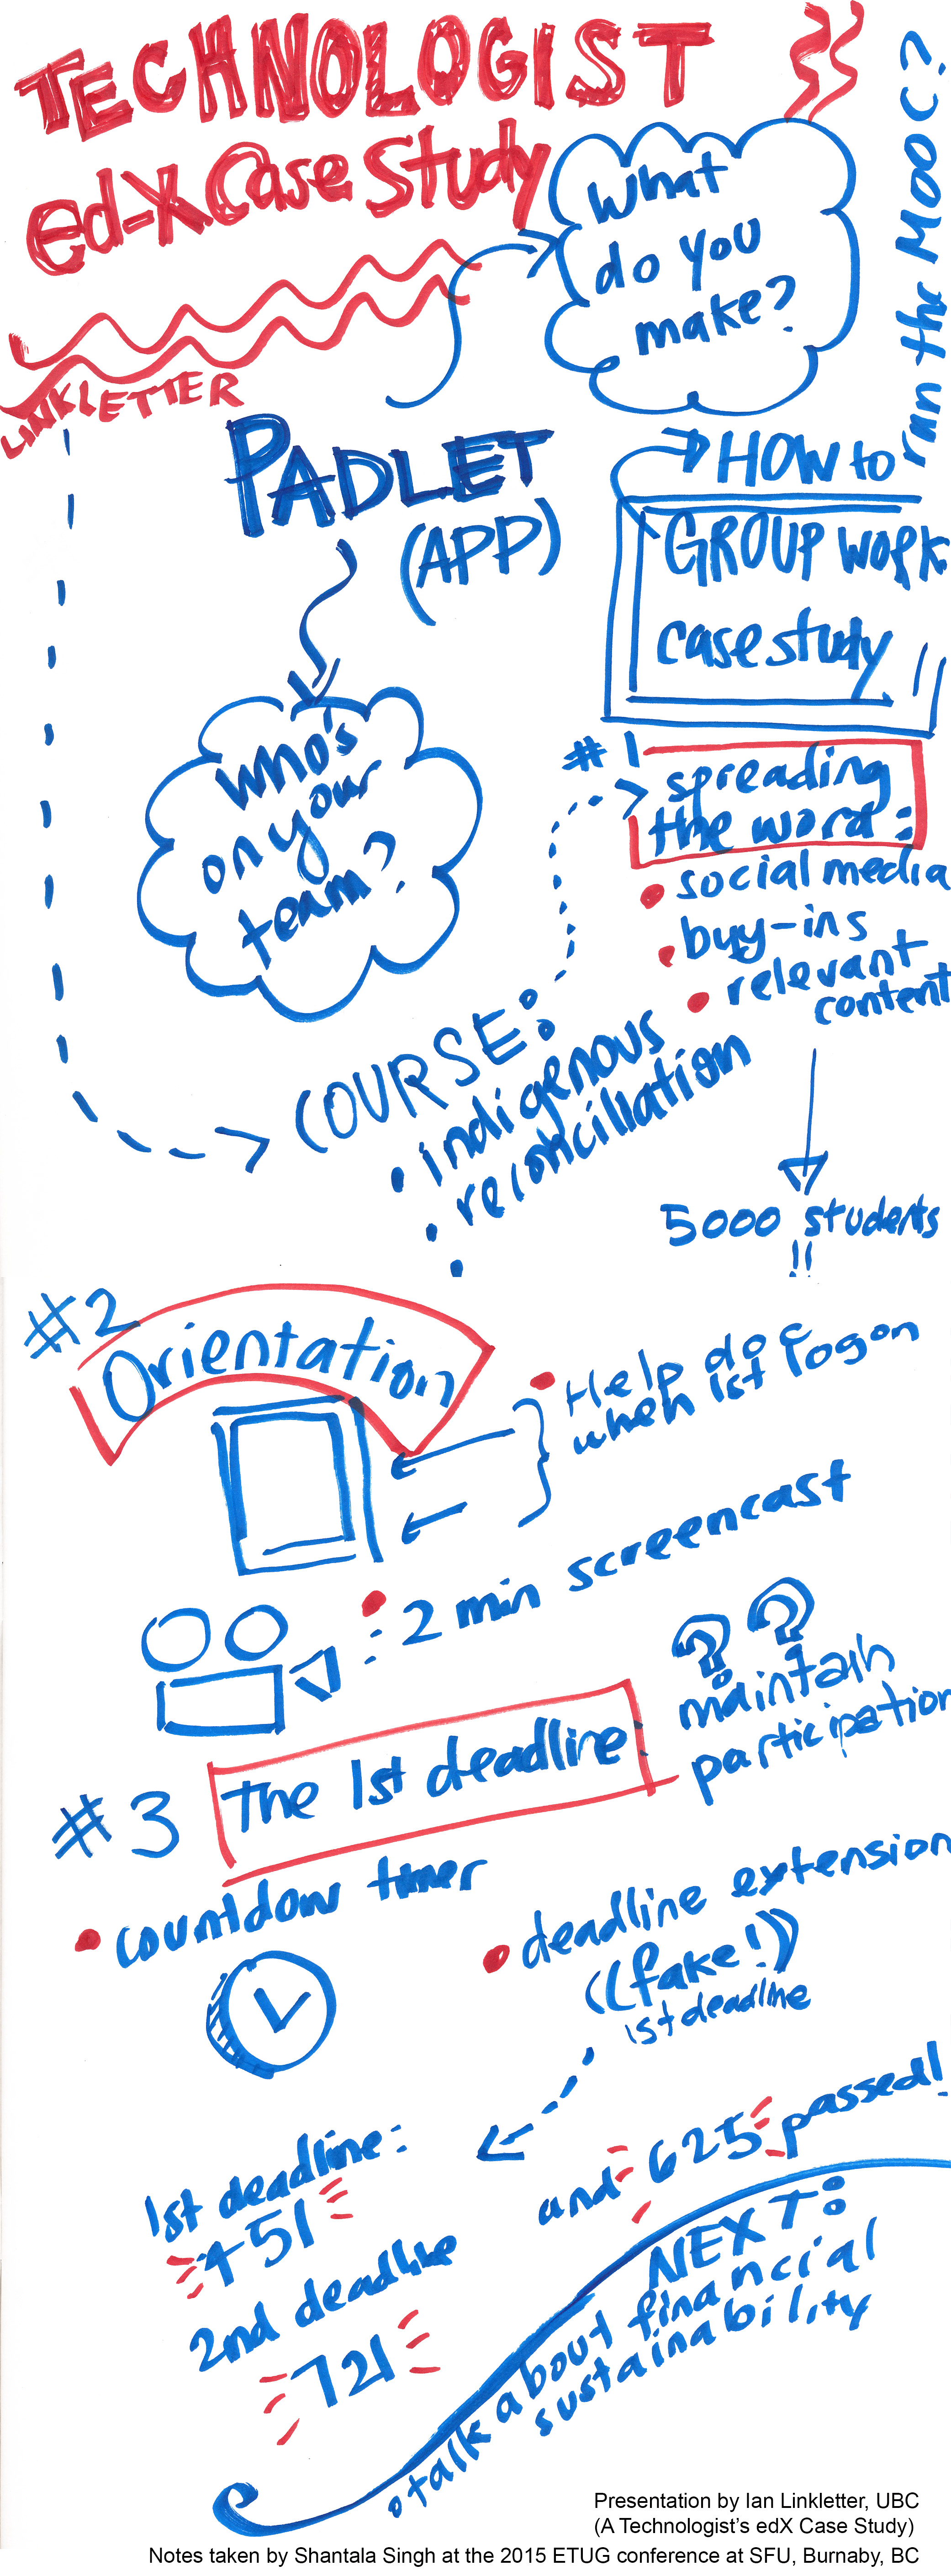 TECHNOLOGIST
ed-X Case Study
LINKLETTER
What
do you
make?
PADLET
(APP)
HOW to
run the MOOC?
GROUP work
case study
who's
on your
team?
#1
spreading
the word:
social media
buy-ins
relevant
content
5000 students
!!
COURSE:
indigenous
reconcillation
#2
Orientation
Help doc
when 1st logon
2 min screencast
maintain
participation
#3
The 1st deadline
countdow timer
deadline extension
((fake!))
1st deadline
1st deadline:
451
2nd deadline
721
and 625 passed!
NEXT:
talk about financial
sustainability
Presentation by Ian Linkletter, UBC
(A Technologist's edX Case Study)
Notes taken by Shantala Singh at the 2015 ETUG conference at SFU, Burnaby, BC